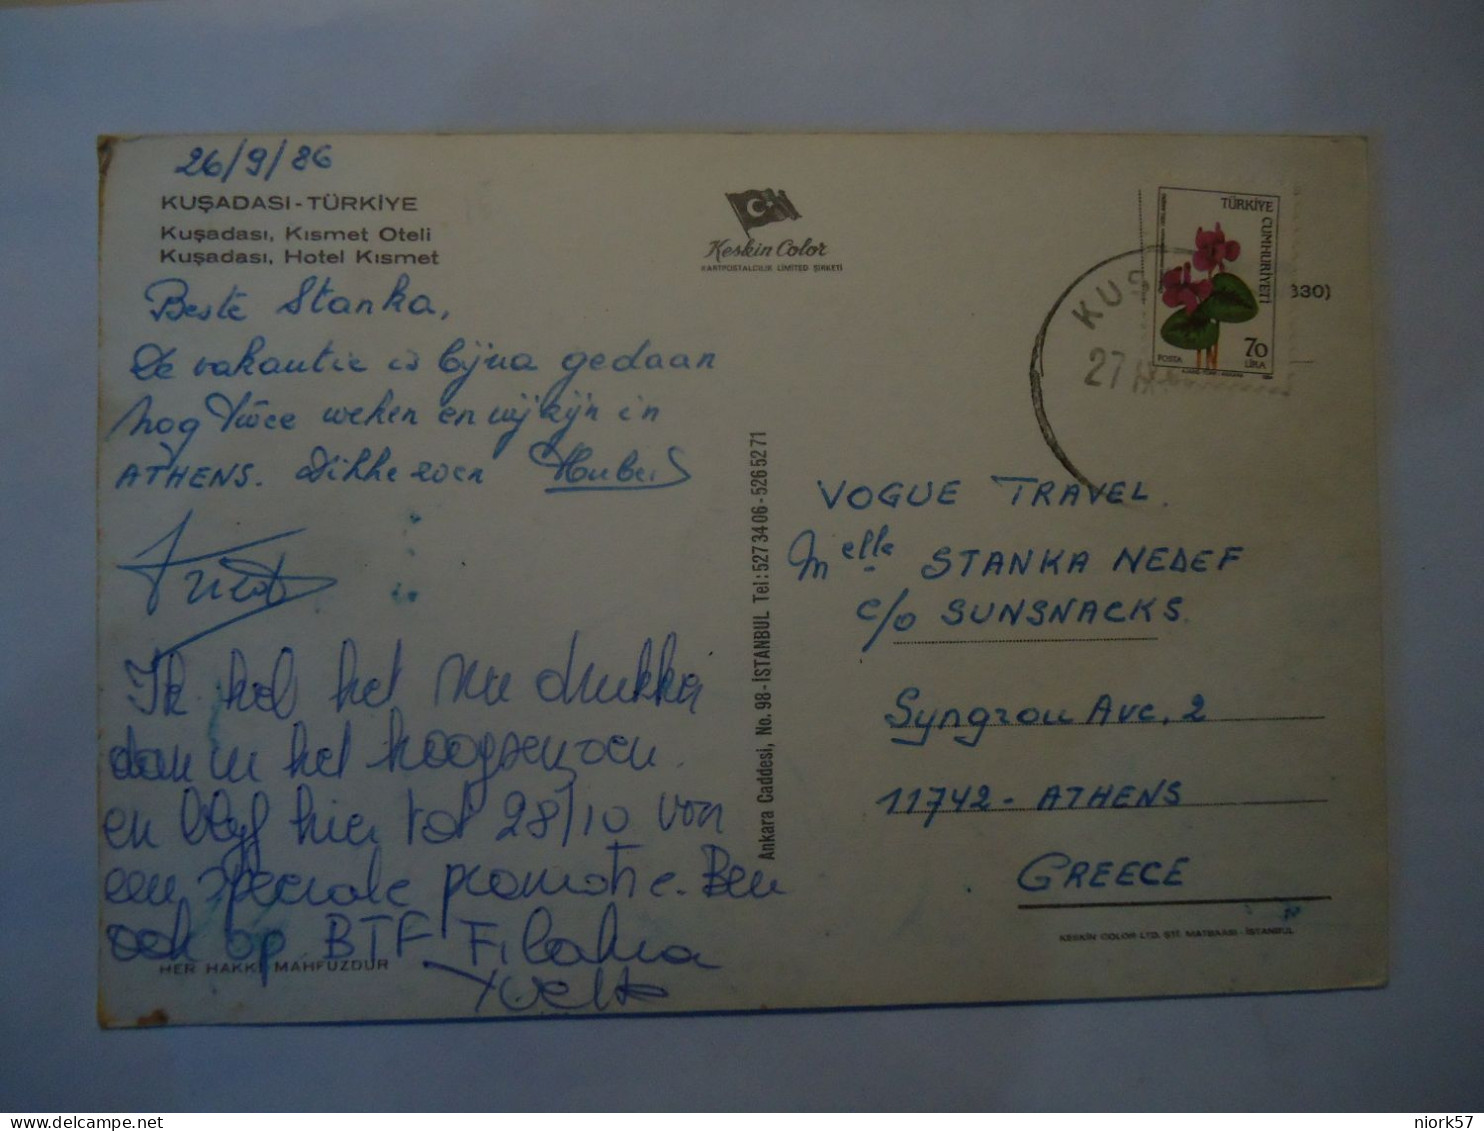 26/9/86
KUŞADASI - TÜRKİYE
Kuşadası, Kısmet Oteli
Kuşadası, Hotel Kısmet
Beste Stanka,
De vakantie is bijna gedaan
nog twee weken en wij zijn in
ATHENS. Dikke zoen Hubert
Ik heb het nu drukker
dan in het hoogseizoen.
en blijf hier tot 28/10 voor
een speciale promotie. Ben
ook op BTF
Yvette
HER HAKKI MAHFUZDUR
Keskin Color
KARTPOSTALCILIK LIMITED ŞIRKETI
Ankara Caddesi, No. 98 - İSTANBUL Tel: 5273406 - 5265271
TÜRKİYE CUMHURİYETİ
POSTA
70
LİRA
KUŞ
27
330)
VOGUE TRAVEL.
Melle STANKA NEDEF
c/o SUNSNACKS.
Syngrou Ave, 2
11742 - ATHENS
GREECE
KESKİN COLOR LTD. ŞTİ. MATBAASI - İSTANBUL
niork57